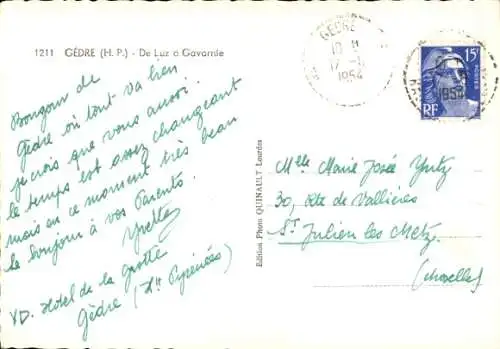 1211 GÈDRE (H. P.) - De Luz à Gavarnie
Bonjour de
Gèdre où tout va bien
je crois que vous aussi.
le temps est assez changeant
mais en ce moment très beau
le bonjour à vos Parents.
Yvette
YD. Hotel de la grotte
Gèdre (Htes Pyrénées)
Edition Photo QUINAULT Lourdes
GÈDRE
1954
15F
RF
1954
Melle Marie Josée
30, Côte de Vallières
St Julien les Metz
(Moselle)